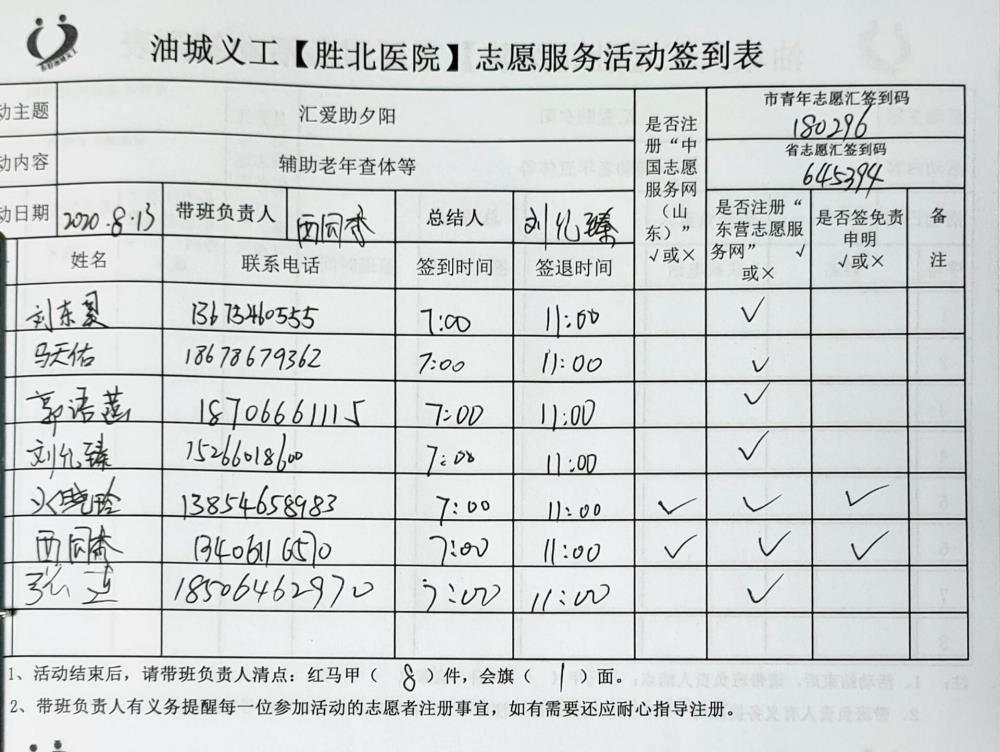 油城义工【胜北医院】志愿服务活动签到表
动主题 汇爱助夕阳 是否注册“中国志愿服务网（山东）”√或× 市青年志愿汇签到码 180296
动内容 辅助老年查体等 省志愿汇签到码 645394
动日期 2020.8.13 带班负责人 西同香 总结人 刘允臻 是否注册“东营志愿服务网”√或× 是否签免责申明√或× 备注
姓名 联系电话 签到时间 签退时间
刘东昊 13673460555 7:00 11:00 √
马天佑 18678679362 7:00 11:00 √
郭语菡 18706661115 7:00 11:00 √
刘允臻 15266018600 7:00 11:00 √
13854658983 7:00 11:00 √ √ √
西同香 13406116570 7:00 11:00 √ √ √
张 18506462970 7:00 11:00 √
1、活动结束后，请带班负责人清点：红马甲（ 8 件，会旗（ 1 ）面。
2、带班负责人有义务提醒每一位参加活动的志愿者注册事宜，如有需要还应耐心指导注册。